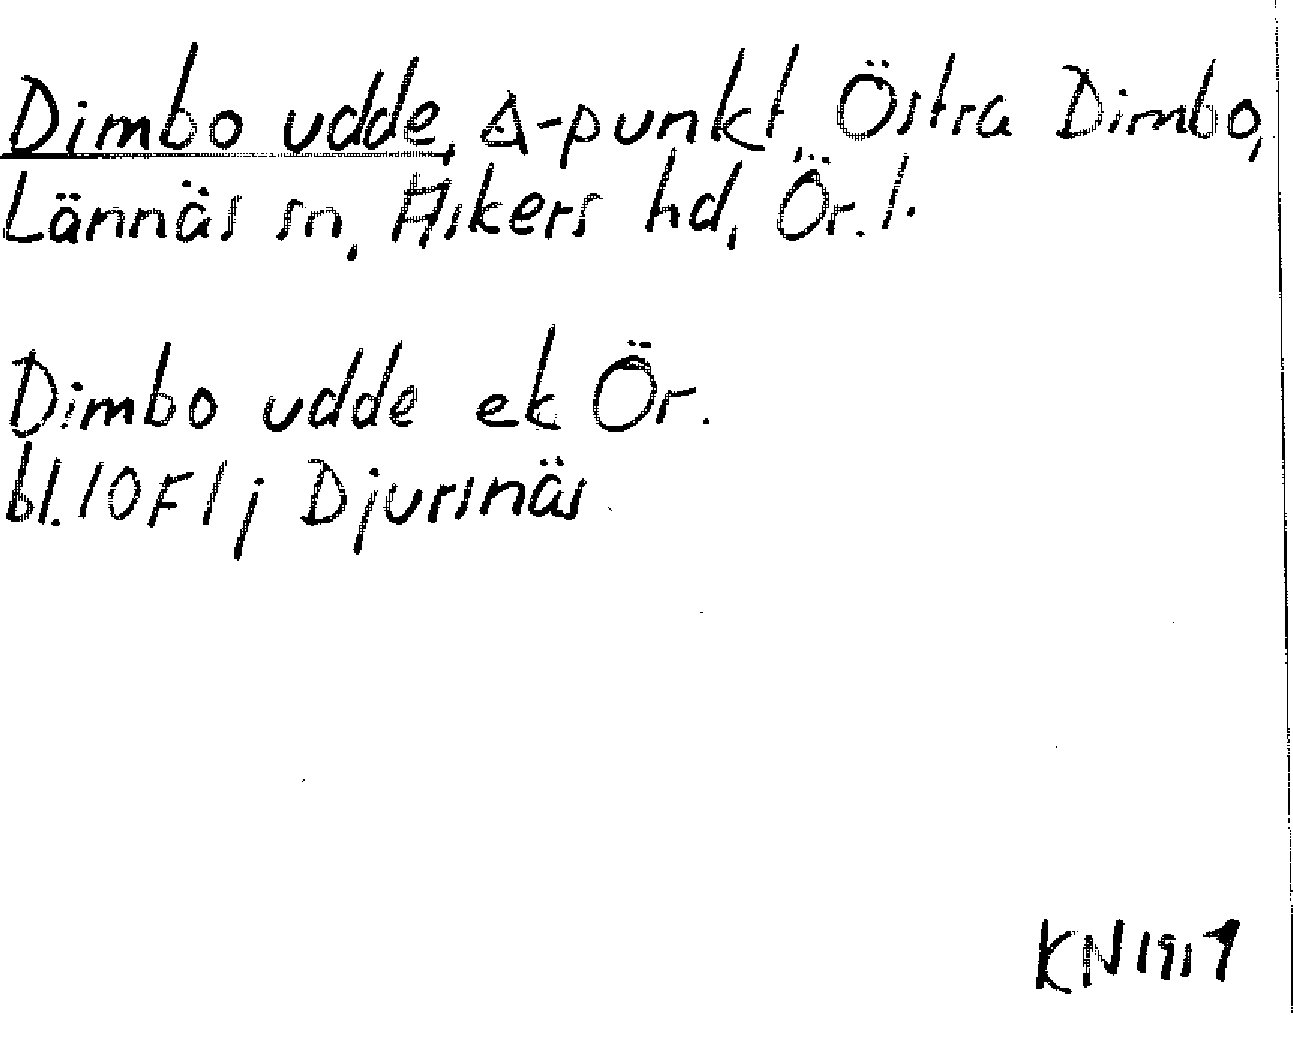 Dimbo udde, Δ-punkt, Östra Dimbo,
Lännäs sn, Askers hd, Ör. l.
Dimbo udde ek Ör.
bl. 10F1j Djursnäs
KN